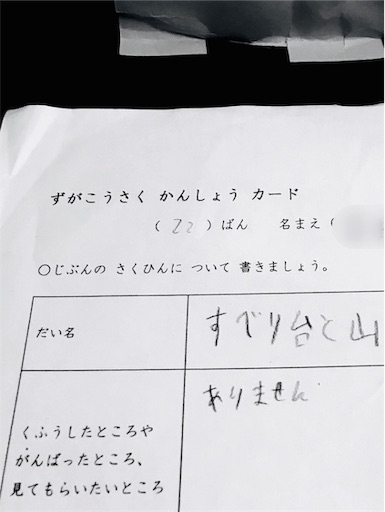 ずがこうさく かんしょう カード
( 22 ) ばん 名まえ (
○じぶんの さくひんに ついて 書きましょう。
だい名
すべり台と山
ありません
くふうしたところや
がんばったところ、
見てもらいたいところ